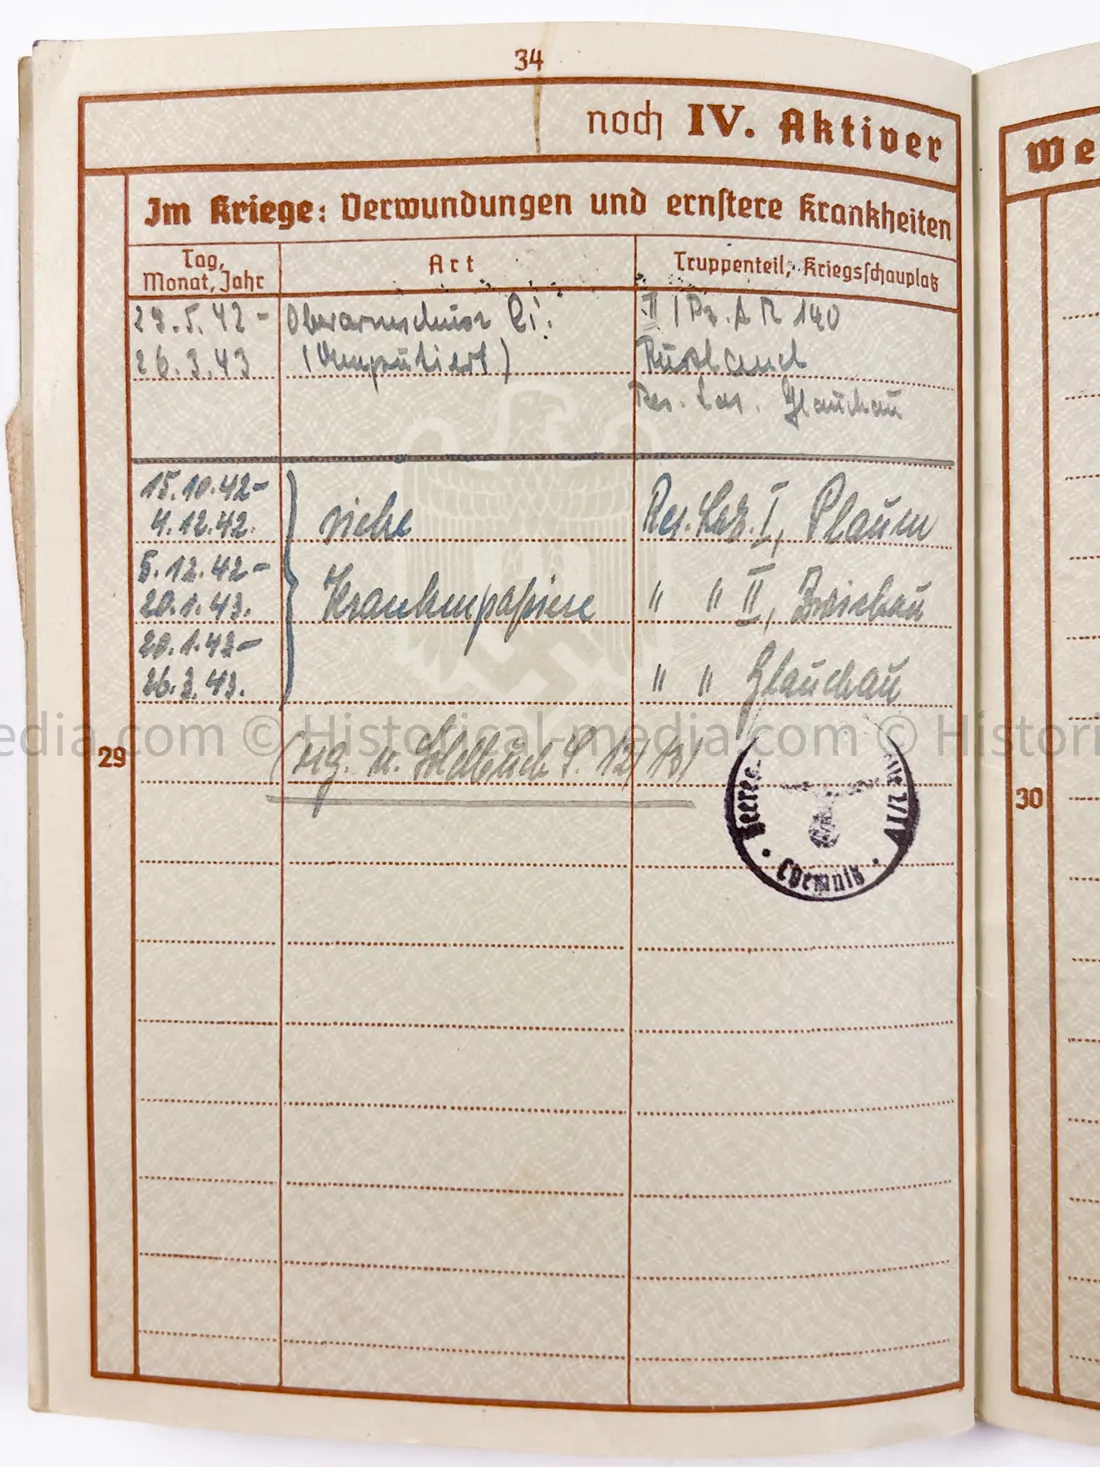 34
noch IV. Aktiver
We
Im Kriege: Verwundungen und ernstere Krankheiten
Tag, Monat, Jahr
Art
Truppenteil, Kriegsschauplatz
29.5.42 - Oberarmschuss li. II/Pz. A R 140
26.3.43 (Amputiert) Russland
Res. Laz. Glauchau
15.10.42-
4.12.42. siehe Res. Laz. I, Plauen
5.12.42-
20.1.43. Krankenpapiere " " II, Zwickau
20.1.43-
26.3.43. " " Glauchau
29
(erg. n. Soldbuch S. 12/13)
30
Heeres
Chemnitz
edia.com © Historical-media.com © Histori